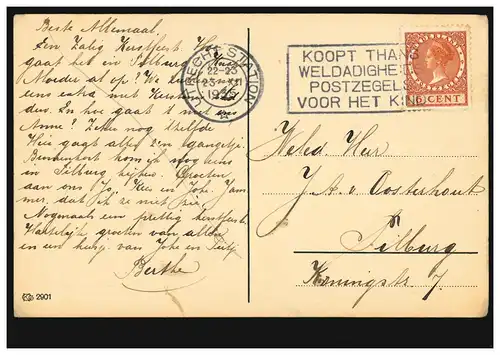 Beste Allemaal.
Een Zalig Kerstfeest. Hoe
gaat het in Tilburg?
Moeder al op? We
eens extra met Kerst
den. En hoe gaat 't met
Anne? Zeker nog 't zelfde
Hier gaat alles z'n gangetje.
Binnenkort kom ik nog eens
in Tilburg kijken. Groeten
aan ons Jo, Kees en Johe. Jam
mer, dat ik ze niet zie.
Nogmaals een prettig kerstfeest.
Hartelijk groeten van allen
en een kusje van Johe en
Berthe
2901
UTRECHT STATION
22-23
23 XII
1925
KOOPT THANS
WELDADIGHEIDS
POSTZEGELS
VOOR HET KIND
CENT
Weled. Heer
J. A. v. Oosterhout
Tilburg
Koningstr. 7.